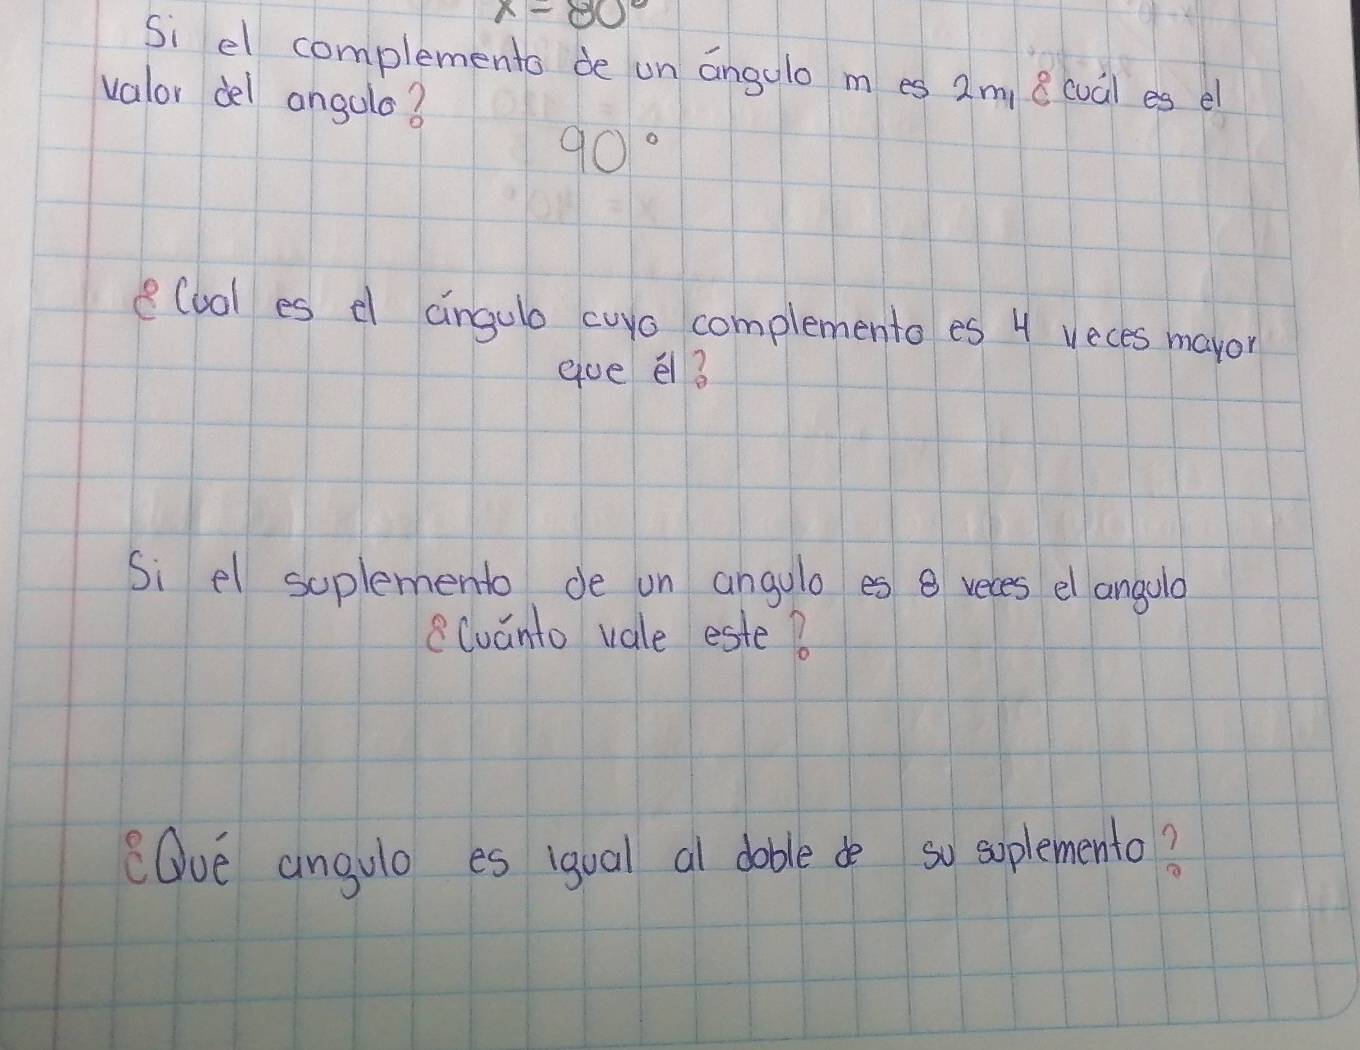 x = 80°
Si el complemento de un ángulo m es 2m, ¿cuál es el
valor del angulo?
90°
¿Cual es el ángulo cuyo complemento es 4 veces mayor
que él?
Si el suplemento de un angulo es 8 veces el angulo
¿Cuánto vale este?
¿Qué angulo es igual al doble de su suplemento?